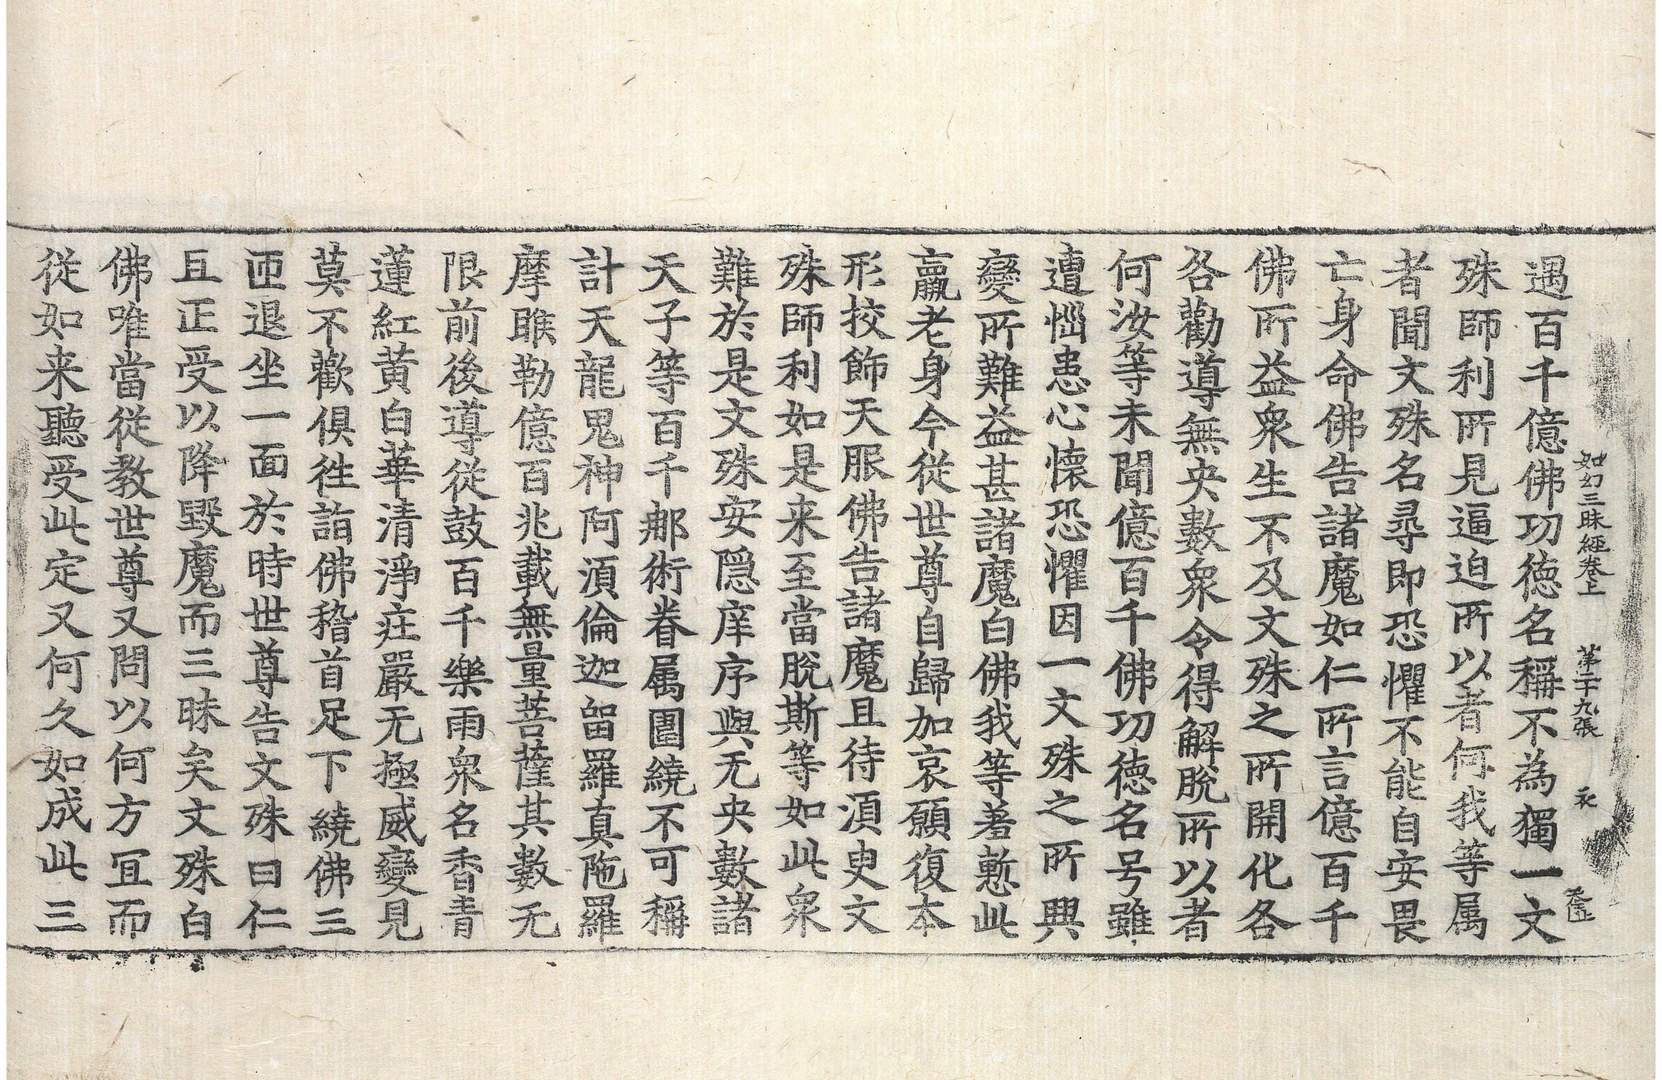 如幻三昧經卷上　第二十九張　衣
遇百千億佛功德名稱不為獨一文
殊師利所見逼迫所以者何我等属
者聞文殊名尋即恐懼不能自安畏
亡身命佛告諸魔如仁所言億百千
佛所益衆生不及文殊之所開化各
各勸導無央數衆令得解脫所以者
何汝等未聞億百千佛功德名号雖
遭惱患心懷恐懼因一文殊之所興
變所難益甚諸魔白佛我等羞慙此
羸老身今從世尊自歸加哀願復本
形挍飾天服佛告諸魔且待湏臾文
殊師利如是来至當脫斯等如此衆
難於是文殊安隠庠序與无央數諸
天子等百千𨚗術眷属圍繞不可稱
計天龍鬼神阿湏倫迦留羅真陁羅
摩睺勒億百兆載無量菩薩其數无
限前後導從鼓百千樂雨衆名香青
蓮紅黄白華清淨莊嚴无極威變見
莫不歡俱徃詣佛稽首足下繞佛三
匝退坐一面於時世尊告文殊曰仁
且正受以降毀魔而三昧矣文殊白
佛唯當從教世尊又問以何方冝而
從如来聽受此定又何久如成此三